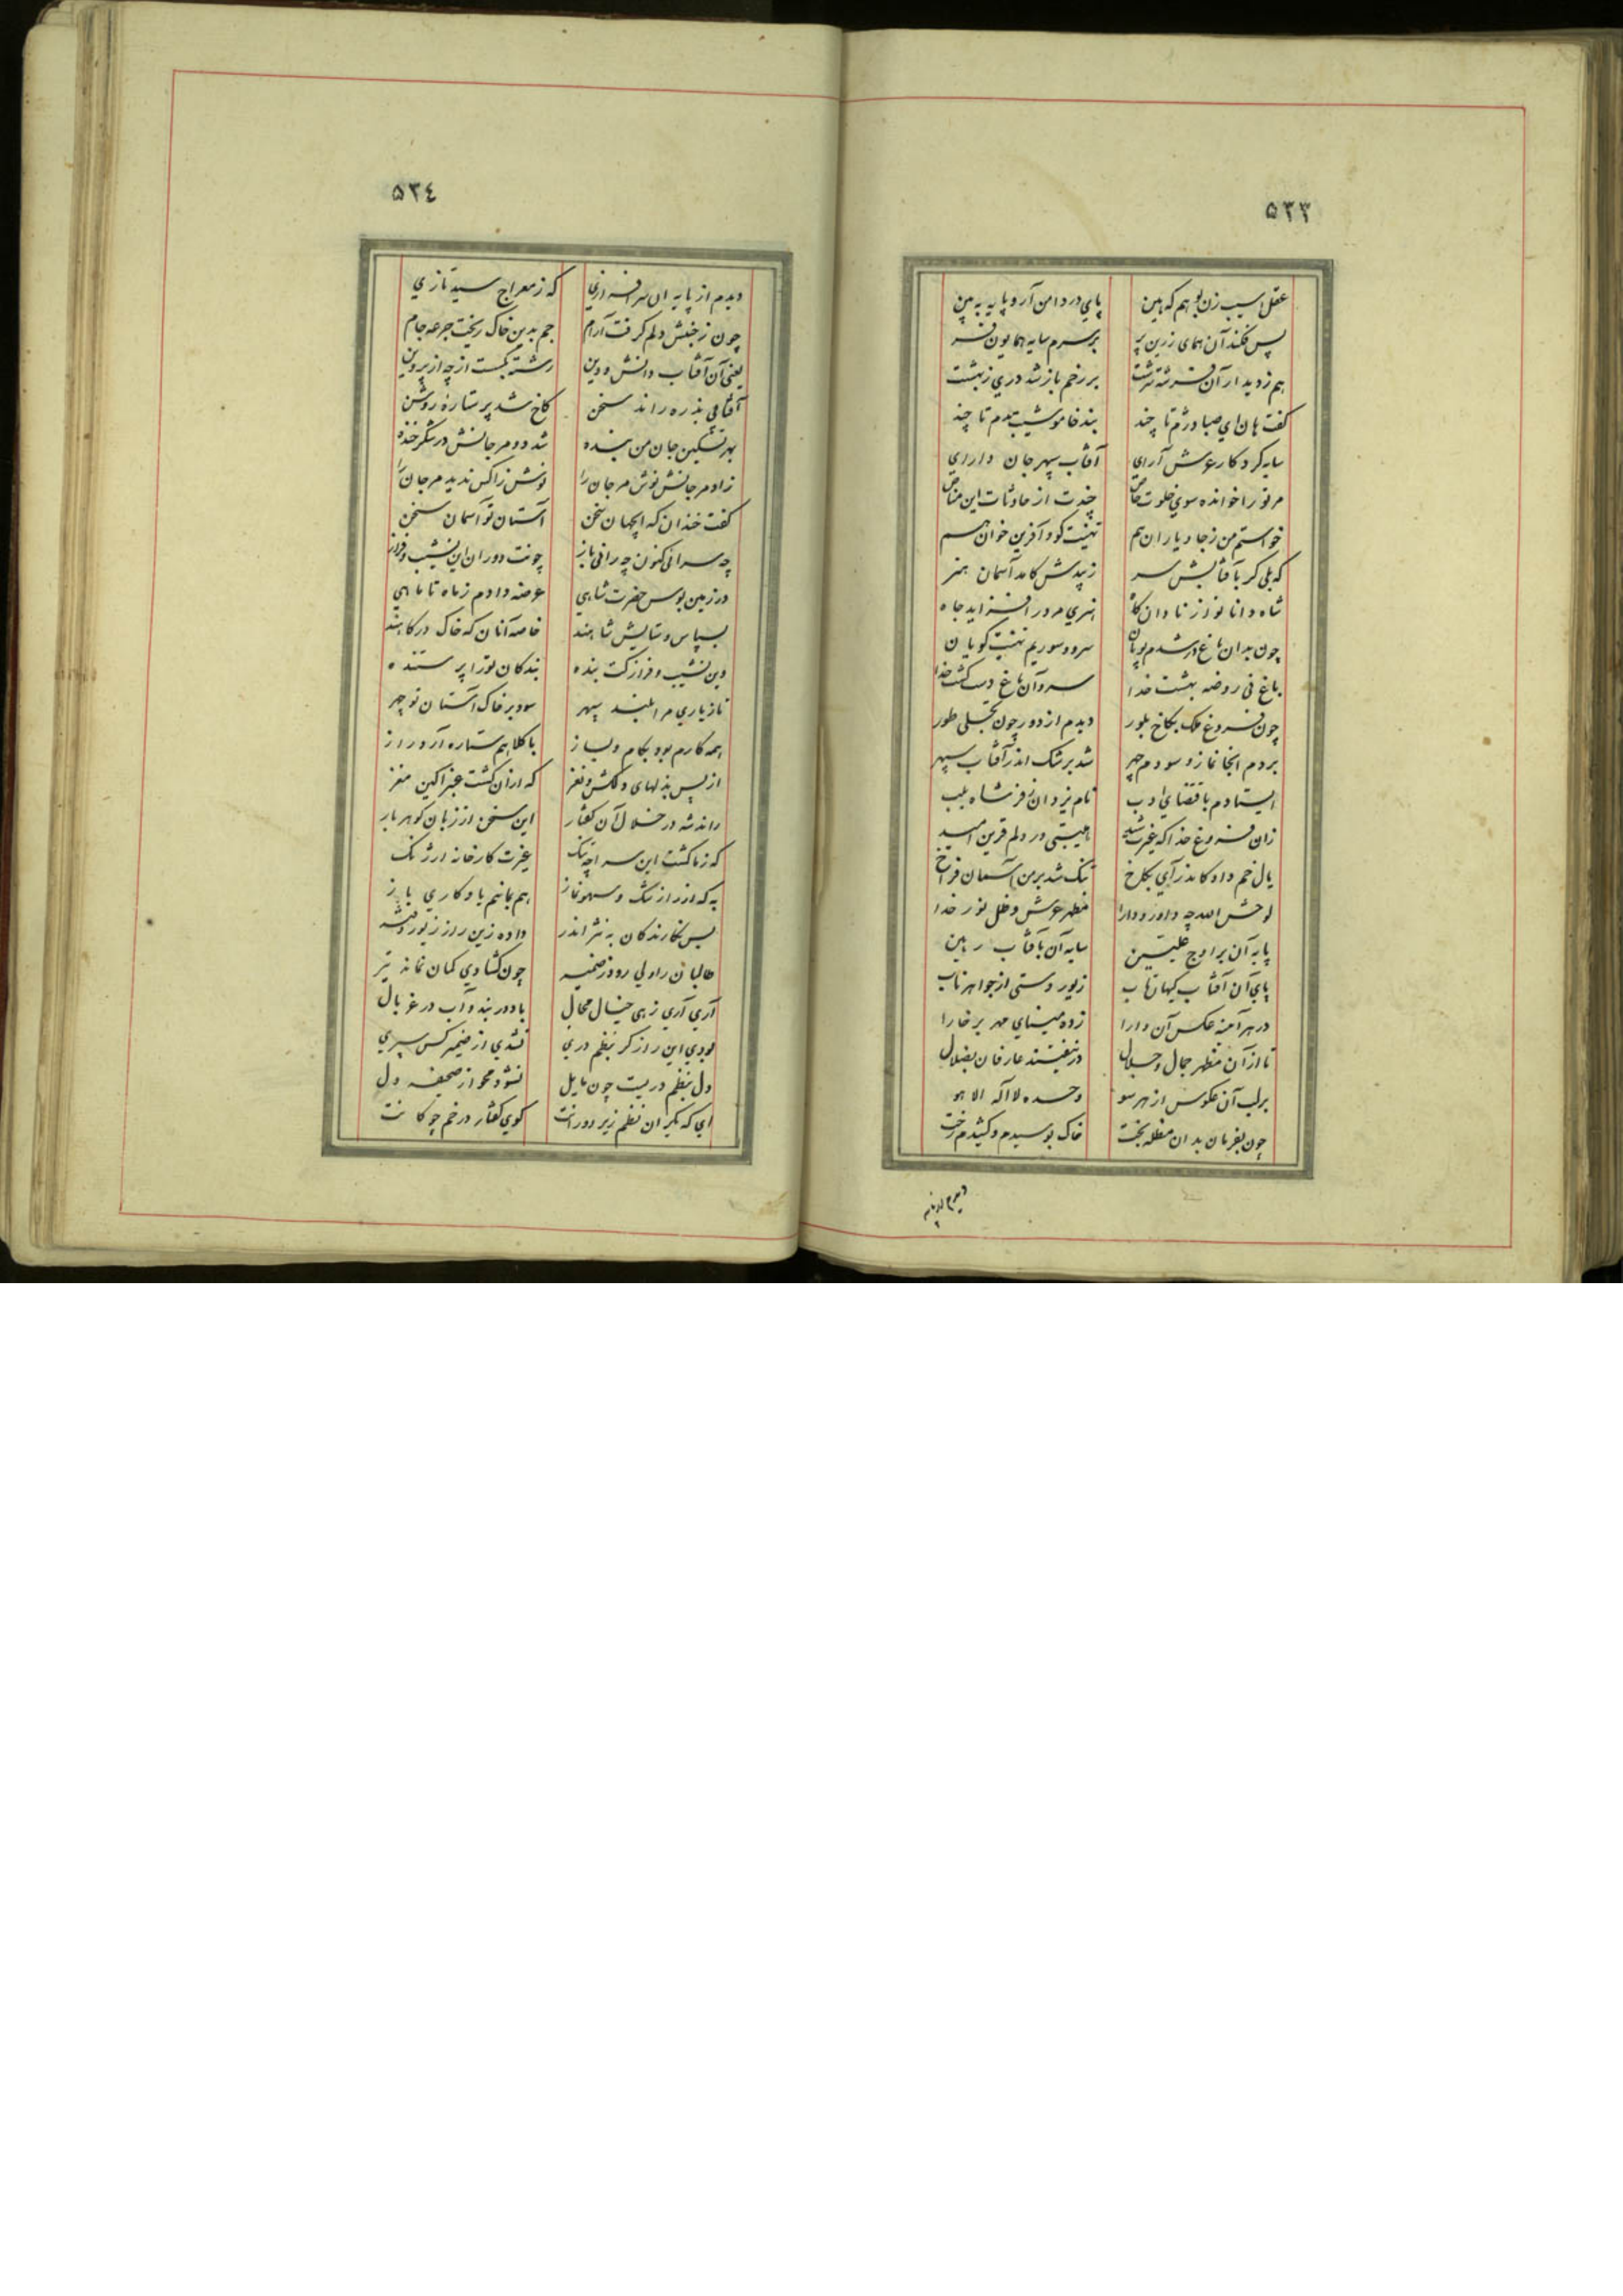 ۵۳۳
عقل اسیب زن بوهم که هین پای در دامن آر و پایه به بین
پس فکند آن همای زرین پر بر سرم سایه همایون فر
هم ز دیدار آن فرشته سرشت بر رخم باز شد دری ز بهشت
کفت هان ای صبا درژم تا چند بند خاموشیت بدم تا چند
سایه کردکار عرش آرای آفتاب سپهر جان دارای
مر تو را خوانده سوی خلوت خاص جذت از حادثات این مناص
خواستم من ز جا و یاران هم تهنیت کو و آفرین خوان هم
که بلی کر بآفتابش سر زیبدش کامد آسمان هنر
شاه دانا نواز نادان کاه هنری مرد را فزاید جاه
چون بدان باغ در شدم پویان سرو و سوریم تهنیت کویان
باغ نی روضه بهشت خدا سرو آن باغ دست کشت خدا
چون فروغ ملک بکاخ بلور دیدم از دور چون تجلی طور
بردم انجا نماز و سودم چهر شد بر شک اندر آفتاب سپهر
ایستادم باقتضای ادب نام یزدان ز فر شاه بلب
زان فروغ خدا که غیرت شید هیبتی در دلم قرین امید
یال خم داد کاندر آی بکاخ تنک شد بر من آسمان فراخ
لوحش الله چه داور و دارا مظهر عرش و ظل نور خدا
پایه آن بر اوج علیین سایه آن بآفتاب رهین
پای آن آفتاب کیهان تاب زیور دستی از جواهر ناب
در هر آمنه عکس آن دارا زده مینای مهر بر خارا
تا از آن مظهر جمال و جلال در نیفتند عارفان بضلال
بر لب آن عکوس از هر سو وحده لا اله الا هو
چون بفرمان بدان مظله بخت خاک بوسیدم و کشیدم رخت
دیدم از پایه
۵۳٤
دیدم از پایه ان سرافرازی که ز معراج سید تازی
چون ز جنبش دلم کرفت آرام جم بدین خاک ریخت جرعه جام
یعنی آن آفتاب دانش و دین رشته بکست از چه از پروین
آفتابی بذره راند سخن کاخ شد پر ستاره روشن
بهر تسکین جان من بنده شد دو مرجانش در شکر خنده
زاد مرجانش نوش مرجان را نوشش زا کس ندید مرجان را
کفت خندان که ایجهان سخن آستان تو آسمان سخن
چه سرائی کنون چه رانی باز چونت دوران این نشیب و فراز
در زمین بوس حضرت شاهی عرضه دادم ز ماه تا ماهی
بسپاس و ستایش شاهند خاصه آنان که خاک درکاهند
وین نشیب و فراز کت بنده بندکان تو را پرستنده
تا ز یاری مرا بلند سپهر سود بر خاک آستان تو چهر
همه کارم بود بکام و بساز با کلاهم ستاره آرد راز
از پس بذلهای دلکش و نغز که از آن کشت عنبر اکین مغز
راند شه در خلال آن کفتار این سخن از زبان کوهر بار
که ز ما کشت این سراچه تنک غیرت کارخانه ارژنک
به که از راز شک و سهو نماز هم بمانیم یادکاری باز
بس نکارندکان به نثر اندر داده زین راز زیور دفتر
طالبان را ولی رود ز ضمیر چون کشادی کمان نماند تیر
آری آری زهی خیال محال باد در بند و آب در غربال
بودی این راز کر بنظم دری نشدی از ضمیر کس سپری
دل بنظم دریست چون مایل نشود محو از صحیفه دل
ای که یکران نظم زیر دورانت کوی کفتار در خم چوکانت